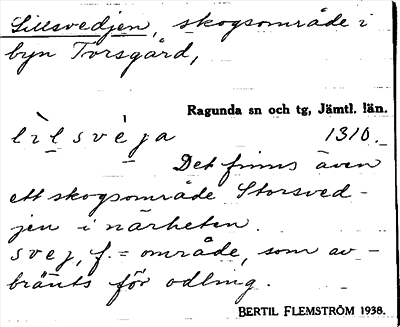 Lillsvedjen, skogsområde i
byn Torsgård,
Ragunda sn och tg, Jämtl. län.
lìlsvèja 1310.
Det finns även
ett skogsområde Storsved-
jen i närheten.
svej, f. = område, som av-
bränts för odling.
BERTIL FLEMSTRÖM 1938.